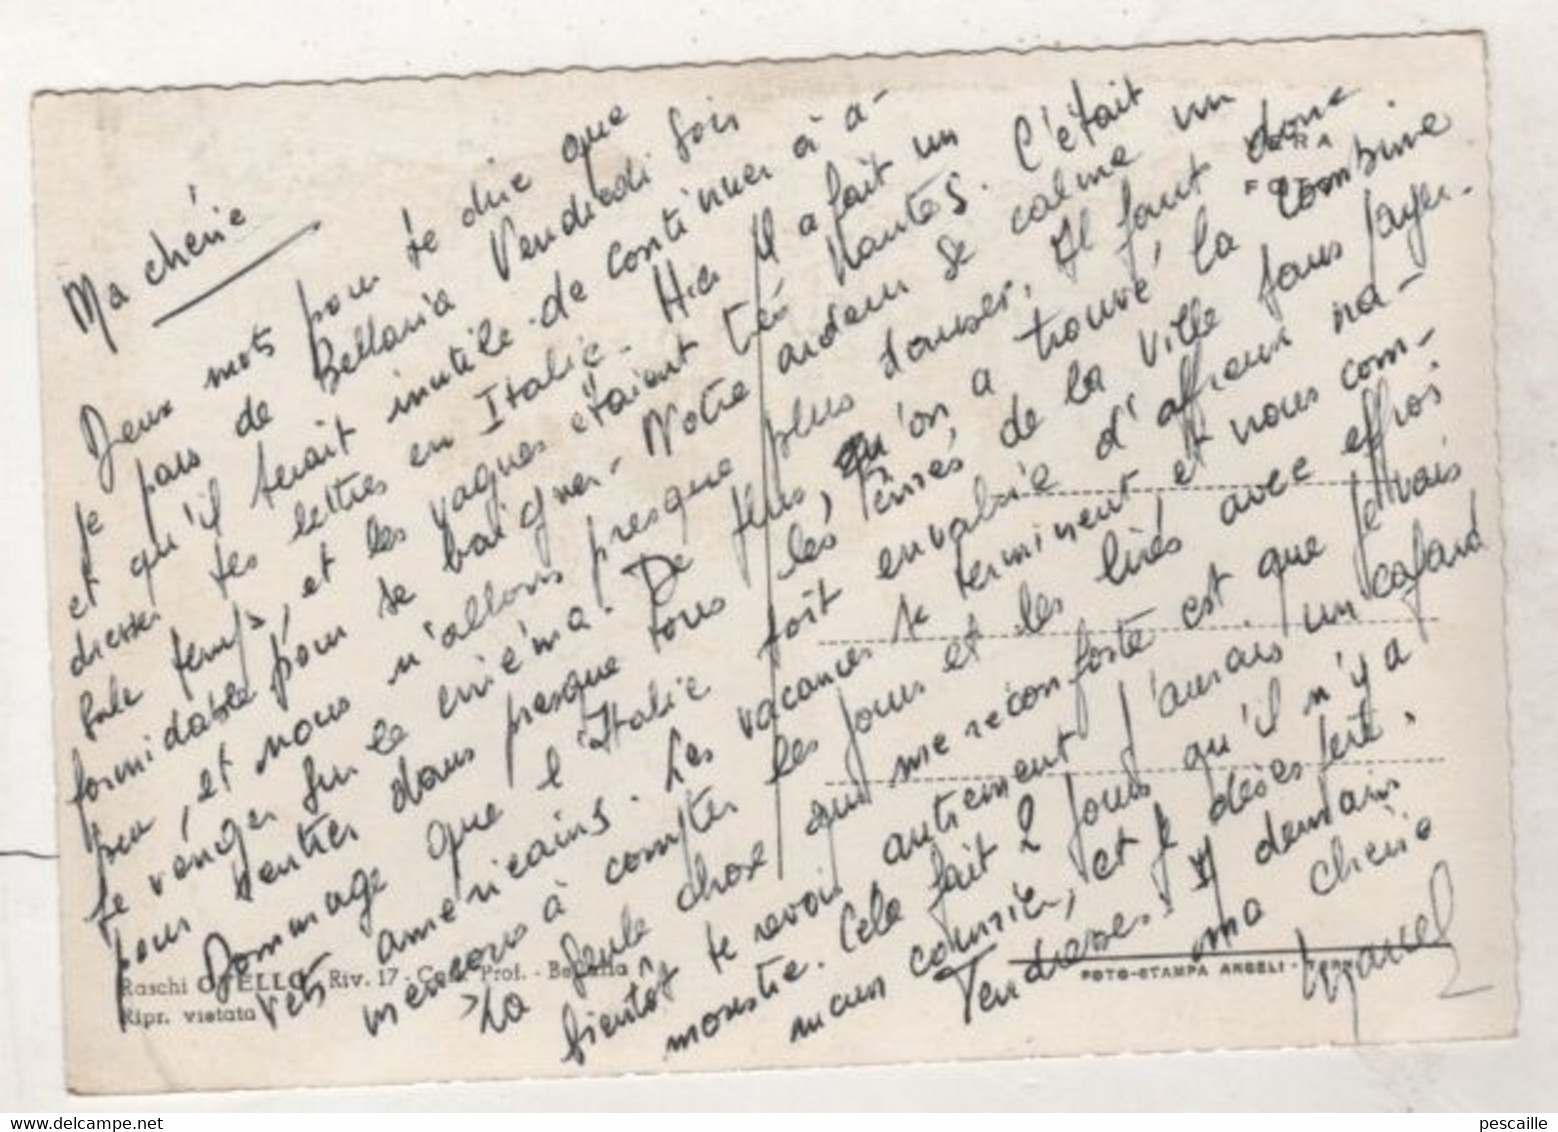 Ma chérie
Deux mots pour te dire que
je pars de Bellaria Vendredi soir
et qu'il serait inutile de continuer à a-
dresser tes lettres en Italie. Hier il a fait un
sale temps, et les vagues étaient très hautes. C'était
formidable pour se baigner. Notre ardeur se calme un
peu, et nous n'allons presque plus danser. Il faut donc
se venger sur le cinéma. De plus, qu'on a trouvé la combine
pour rentrer dans presque tous les cinés de la ville sans payer.
Dommage que l'Italie soit envahie d'affreux na-
vets américains. Les vacances se terminent et nous com-
mençons à compter les jours et les lires avec effroi
La seule chose qui me réconforte est que je vais
bientôt te revoir autrement j'aurais un cafard
monstre. Cela fait 2 jours qu'il n'y a
aucun courrier, et je désespère.
Tendresses. A demain
ma chérie
Marcel
VERA
FOTO
Raschi OTELLO - Riv. 17 - Prof. - Bellaria
Ripr. vietata
FOTO-STAMPA ANGELI - TERNI
pescaille